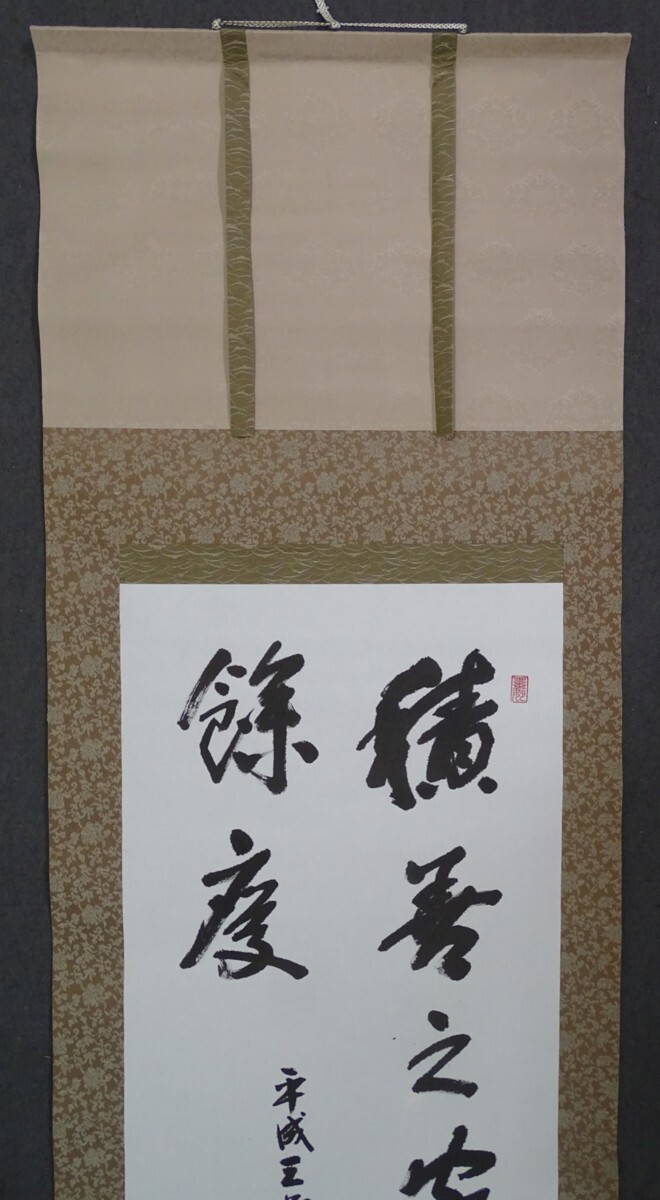 積善之家
餘慶
平成三年